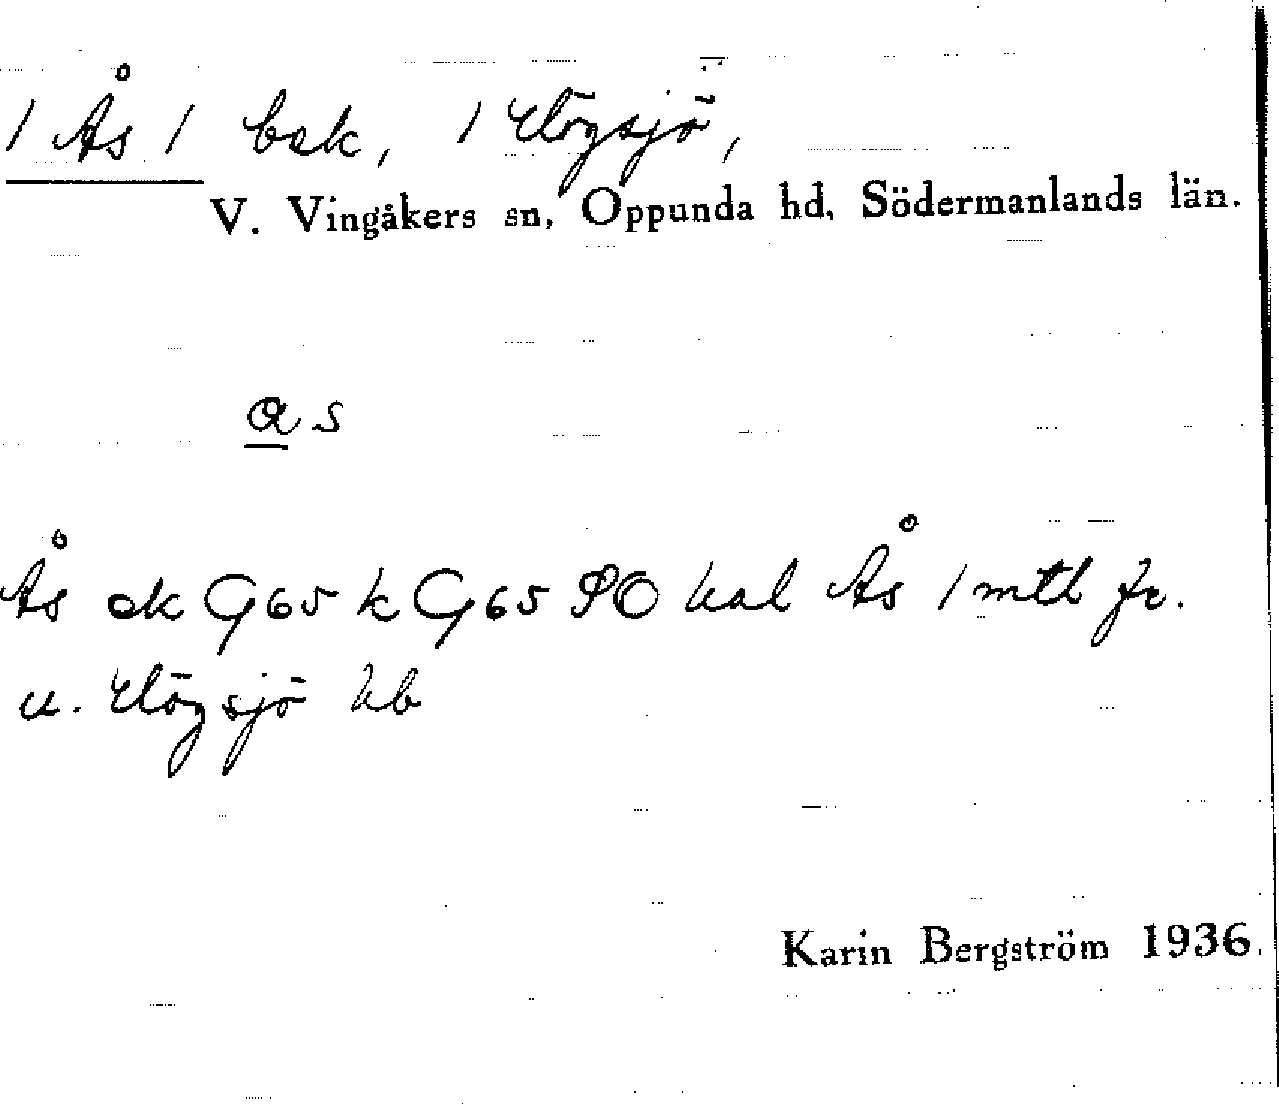 / Ås / bsk, / Högsjö,
V. Vingåkers sn, Oppunda hd, Södermanlands län.
a s
Ås ek G65 k G65 PO hal Ås / mtl fr.
u. Högsjö hb
Karin Bergström 1936.